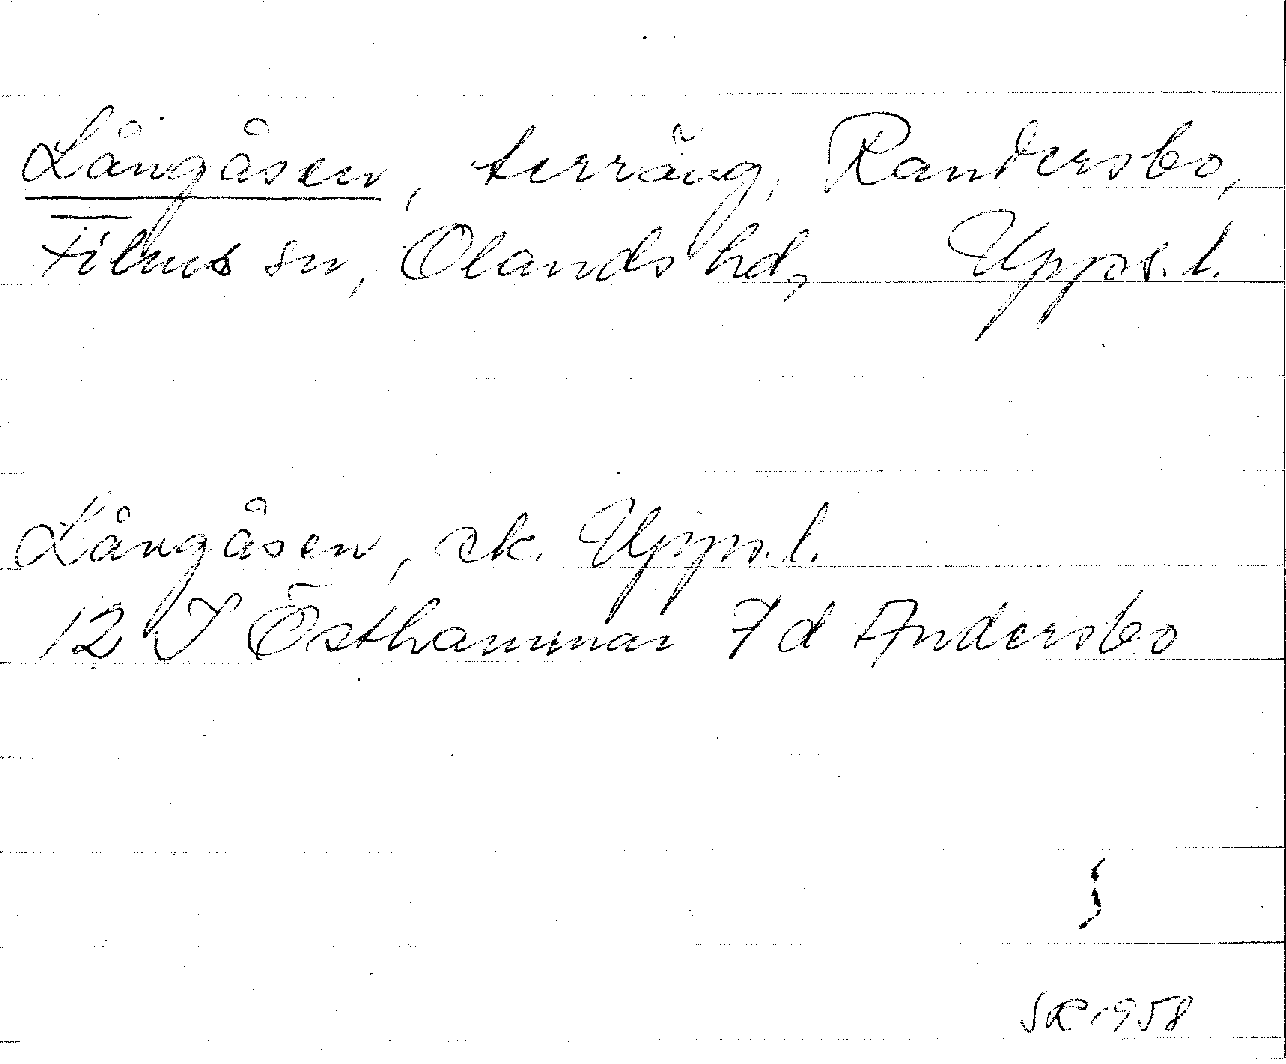 Långåsen, terräng, Randersbo,
Films sn, Olands hd, Upps. l.
Långåsen, ek. Upps. l.
12 I Östhammar 7d Andersbo
SR 1958